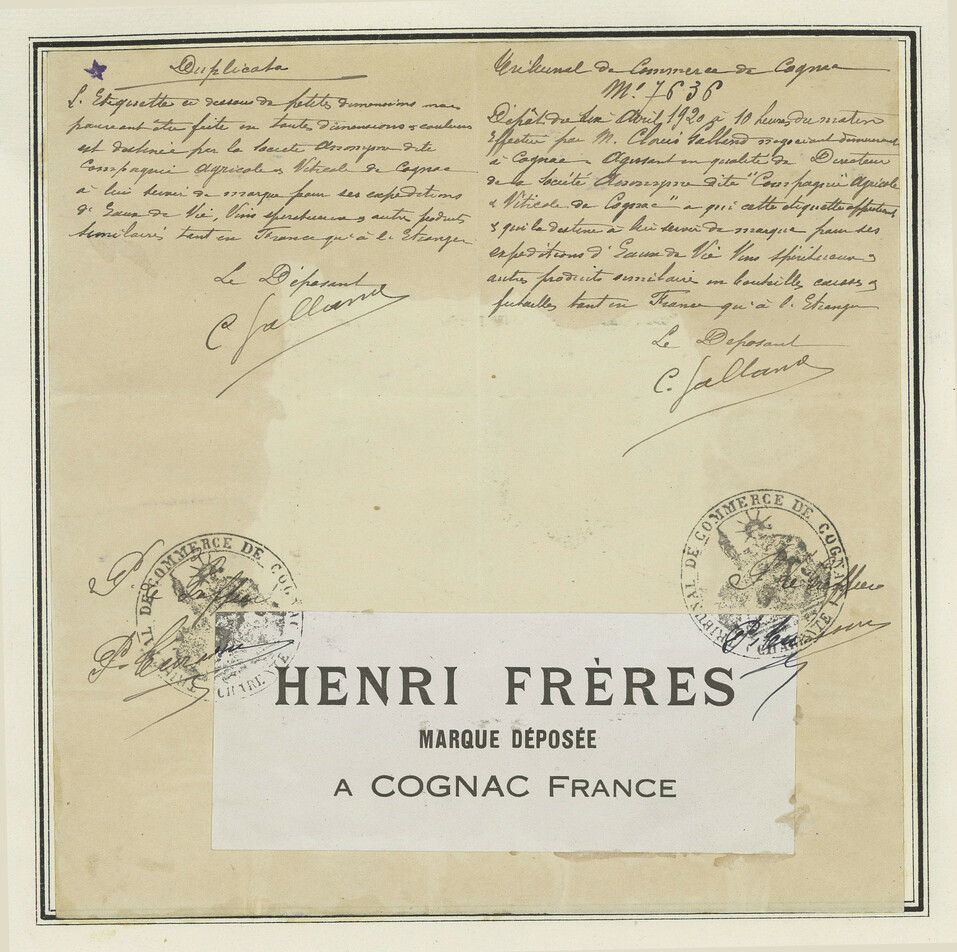 Duplicata
L'Etiquette ci dessous de petites dimensions mais
pouvant être faite en toutes dimensions & couleurs
est destinée par la Societe Anonyme dite
Compagnie Agricole & Viticole de Cognac
à lui servir de marque pour ses expeditions
d'Eaux de Vie, Vins spiritueux & autres produits
similaires tant en France qu'à l'Etranger
Le Déposant
C. Galland
Tribunal de Commerce de Cognac
No. 7636
Dépôt du six Avril 1920 à 10 heures du matin
Effectué par M. Clovis Galland negociant demeurant
à Cognac Agissant en qualité de Directeur
de la Société Anonyme dite "Compagnie Agricole
& Viticole de Cognac" a qui cette etiquette appartient
& qui la destine à lui servir de marque pour ses
expeditions d'Eaux de Vie Vins spiritueux &
autres produits similaire en bouteilles caisses &
futailles tant en France qu'à l'Etranger
Le Deposant
C. Galland
TRIBUNAL DE COMMERCE DE COGNAC
CHARENTE
TRIBUNAL DE COMMERCE DE COGNAC
CHARENTE
HENRI FRÈRES
MARQUE DÉPOSÉE
A COGNAC FRANCE